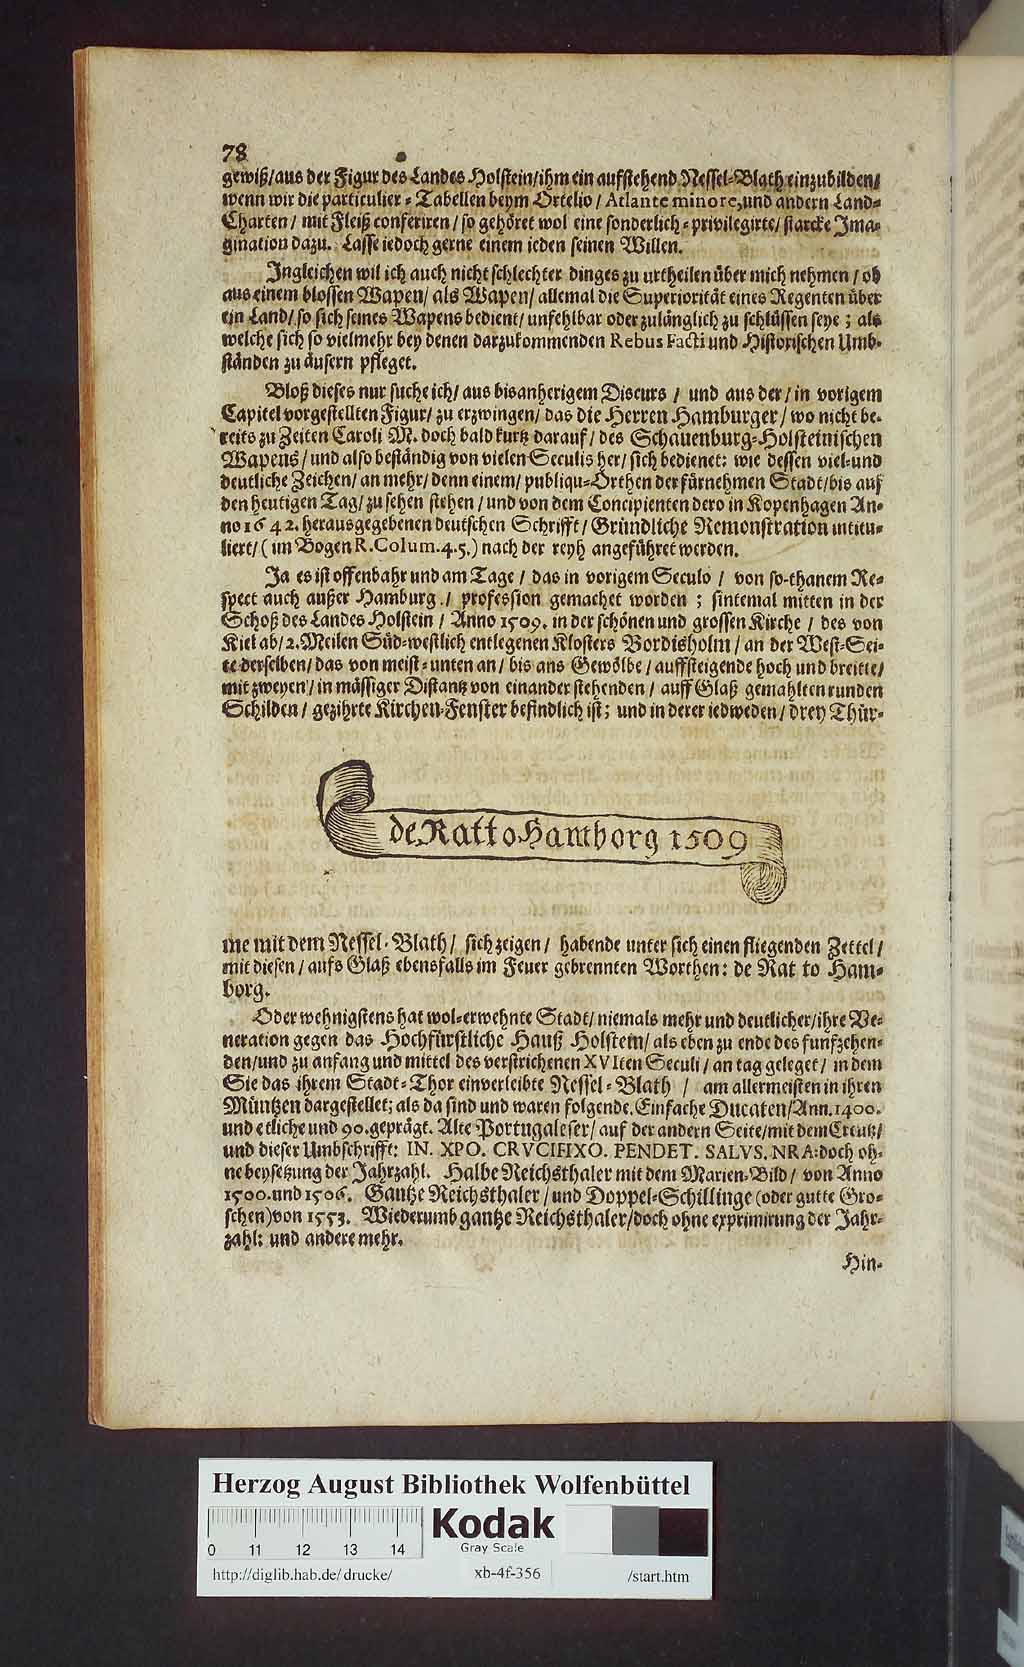 78
gewiß/aus der Figur des Landes Holstein/ihm ein aufstehend Nessel-Blath einzubilden/
wenn wir die particulier-Tabellen beym Ortelio/ Atlante minore, und andern Land-
Charten/ mit Fleiß conferiren/ so gehöret wol eine sonderlich-privilegirte/ starcke Ima-
gination dazu. Lasse iedoch gerne einem ieden seinen Willen.
Ingleichen wil ich auch nicht schlechter dinges zu urtheilen über mich nehmen/ ob
aus einem blossen Wapen/ als Wapen/ allemal die Superiorität eines Regenten über
ein Land/ so sich seines Wapens bedient/ unfehlbar oder zulänglich zu schlüssen seye; als
welche sich so vielmehr bey denen darzukommenden Rebus Facti und Historischen Umb-
ständen zu äusern pfleget.
Bloß dieses nur suche ich/ aus bisanherigem Discurs/ und aus der/ in vorigem
Capitel vorgestellten Figur/ zu erzwingen/ das die Herren Hamburger/ wo nicht be-
reits zu Zeiten Caroli M. doch bald kurtz darauf/ des Schauenburg-Holsteinischen
Wapens/ und also beständig von vielen Seculis her/ sich bedienet: wie dessen viel-und
deutliche Zeichen/ an mehr/ denn einem/ publiqu-Orthen der fürnehmen Stadt/ bis auf
den heutigen Tag/ zu sehen stehen/ und von dem Concipienten dero in Kopenhagen An-
no 1642. herausgegebenen deutschen Schrifft/ Gründliche Remonstration intitu-
liert/ (im Bogen R. Colum. 4. 5.) nach der reyh angeführet werden.
Ja es ist offenbahr und am Tage/ das in vorigem Seculo/ von so-thanem Re-
spect auch außer Hamburg/ profession gemachet worden; sintemal mitten in der
Schoß des Landes Holstein/ Anno 1509. in der schönen und grossen Kirche/ des von
Kiel ab/ 2. Meilen Süd-westlich entlegenen Klosters Bordisholm/ an der West-Sei-
te derselben/ das von meist-unten an/ bis ans Gewölbe/ auffsteigende hoch und breitte/
mit zweyen/ in mässiger Distantz von einander stehenden/ auff Glaß gemahlten runden
Schilden/ gezihrte Kirchen-Fenster befindlich ist; und in derer iedweden/ drey Thür-
de Rat to Hamborg 1509
me mit dem Nessel-Blath/ sich zeigen/ habende unter sich einen fliegenden Zettel/
mit diesen/ aufs Glaß ebensfalls im Feuer gebrennten Worthen: de Rat to Ham-
borg.
Oder wehnigstens hat wol-erwehnte Stadt/ niemals mehr und deutlicher/ ihre Ve-
neration gegen das Hochfürstliche Hauß Holstein/ als eben zu ende des funfzehen-
den/ und zu anfang und mittel des verstrichenen XVIten Seculi/ an tag geleget/ in dem
Sie das ihrem Stadt-Thor einverleibte Nessel-Blath/ am allermeisten in ihren
Müntzen dargestellet; als da sind und waren folgende. Einfache Ducaten/ Ann. 1400.
und etliche und 90. geprägt. Alte Portugaleser/ auf der andern Seite/ mit dem Creutz/
und dieser Umbschrifft: IN. XPO. CRVCIFIXO. PENDET. SALVS. NRA: doch oh-
ne beysetzung der Jahrzahl. Halbe Reichsthaler mit dem Marien-Bild/ von Anno
1500. und 1506. Gantze Reichsthaler/ und Doppel-Schillinge (oder gutte Gro-
schen) von 1553. Wiederumb gantze Reichsthaler/ doch ohne exprimirung der Jahr-
zahl: und andere mehr.
Hin-
Herzog August Bibliothek Wolfenbüttel
Kodak
Gray Scale
0 11 12 13 14
http://diglib.hab.de/drucke/ xb-4f-356 /start.htm